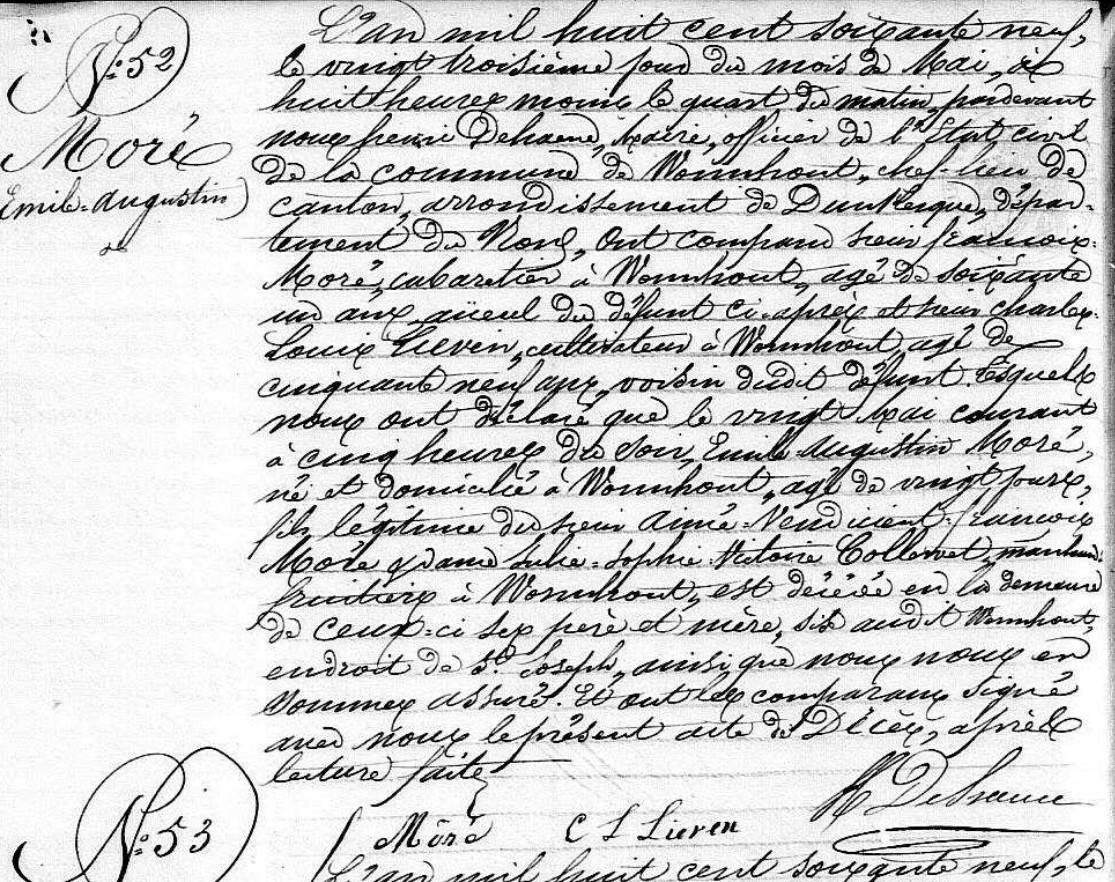 N.° 52
Moré
Emile-Augustin
L'an mil huit cent soixante neuf,
le vingt troisième jour du mois de Mai, à
huit heures moins le quart du matin, pardevant
nous henri Dehaene, Maire, officier de l'Etat civil
de la commune de Wormhout, chef-lieu de
canton, arrondissement de Dunkerque, dépar-
tement du Nord, Ont comparu sieur françois-
Moré, cabaretier à Wormhout, agé de soixante
un ans, aïeul du défunt ci-après et sieur charles-
Louis Lieven, cultivateur à Wormhout, agé de
cinquante neuf ans, voisin dudit défunt. Lesquels
nous ont déclaré que le vingt Mai courant
à cinq heures du soir, Emile-Augustin Moré,
né et domicilié à Wormhout, agé de vingt jours,
fils légitime du sieur Aimé-Vendicient-françois
Moré & dame Julie-Sophie-Victoire marchands
fruitiers à Wormhout, est décédé en la demeure
de ceux-ci ses père et mère, sise audit Wormhout,
endroit de St. Joseph, ainsi que nous nous en
sommes assuré. Et ont les comparans signé
avec nous le présent acte de Décès, après
lecture faite
Moré C L Lieven H Dehaene
N.° 53
L'an mil huit cent soixante neuf, le